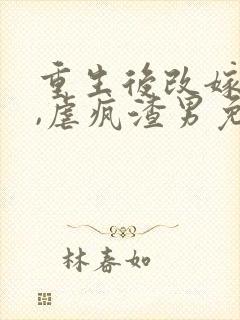 重生後改嫁
,虐瘋渣男免
林春如